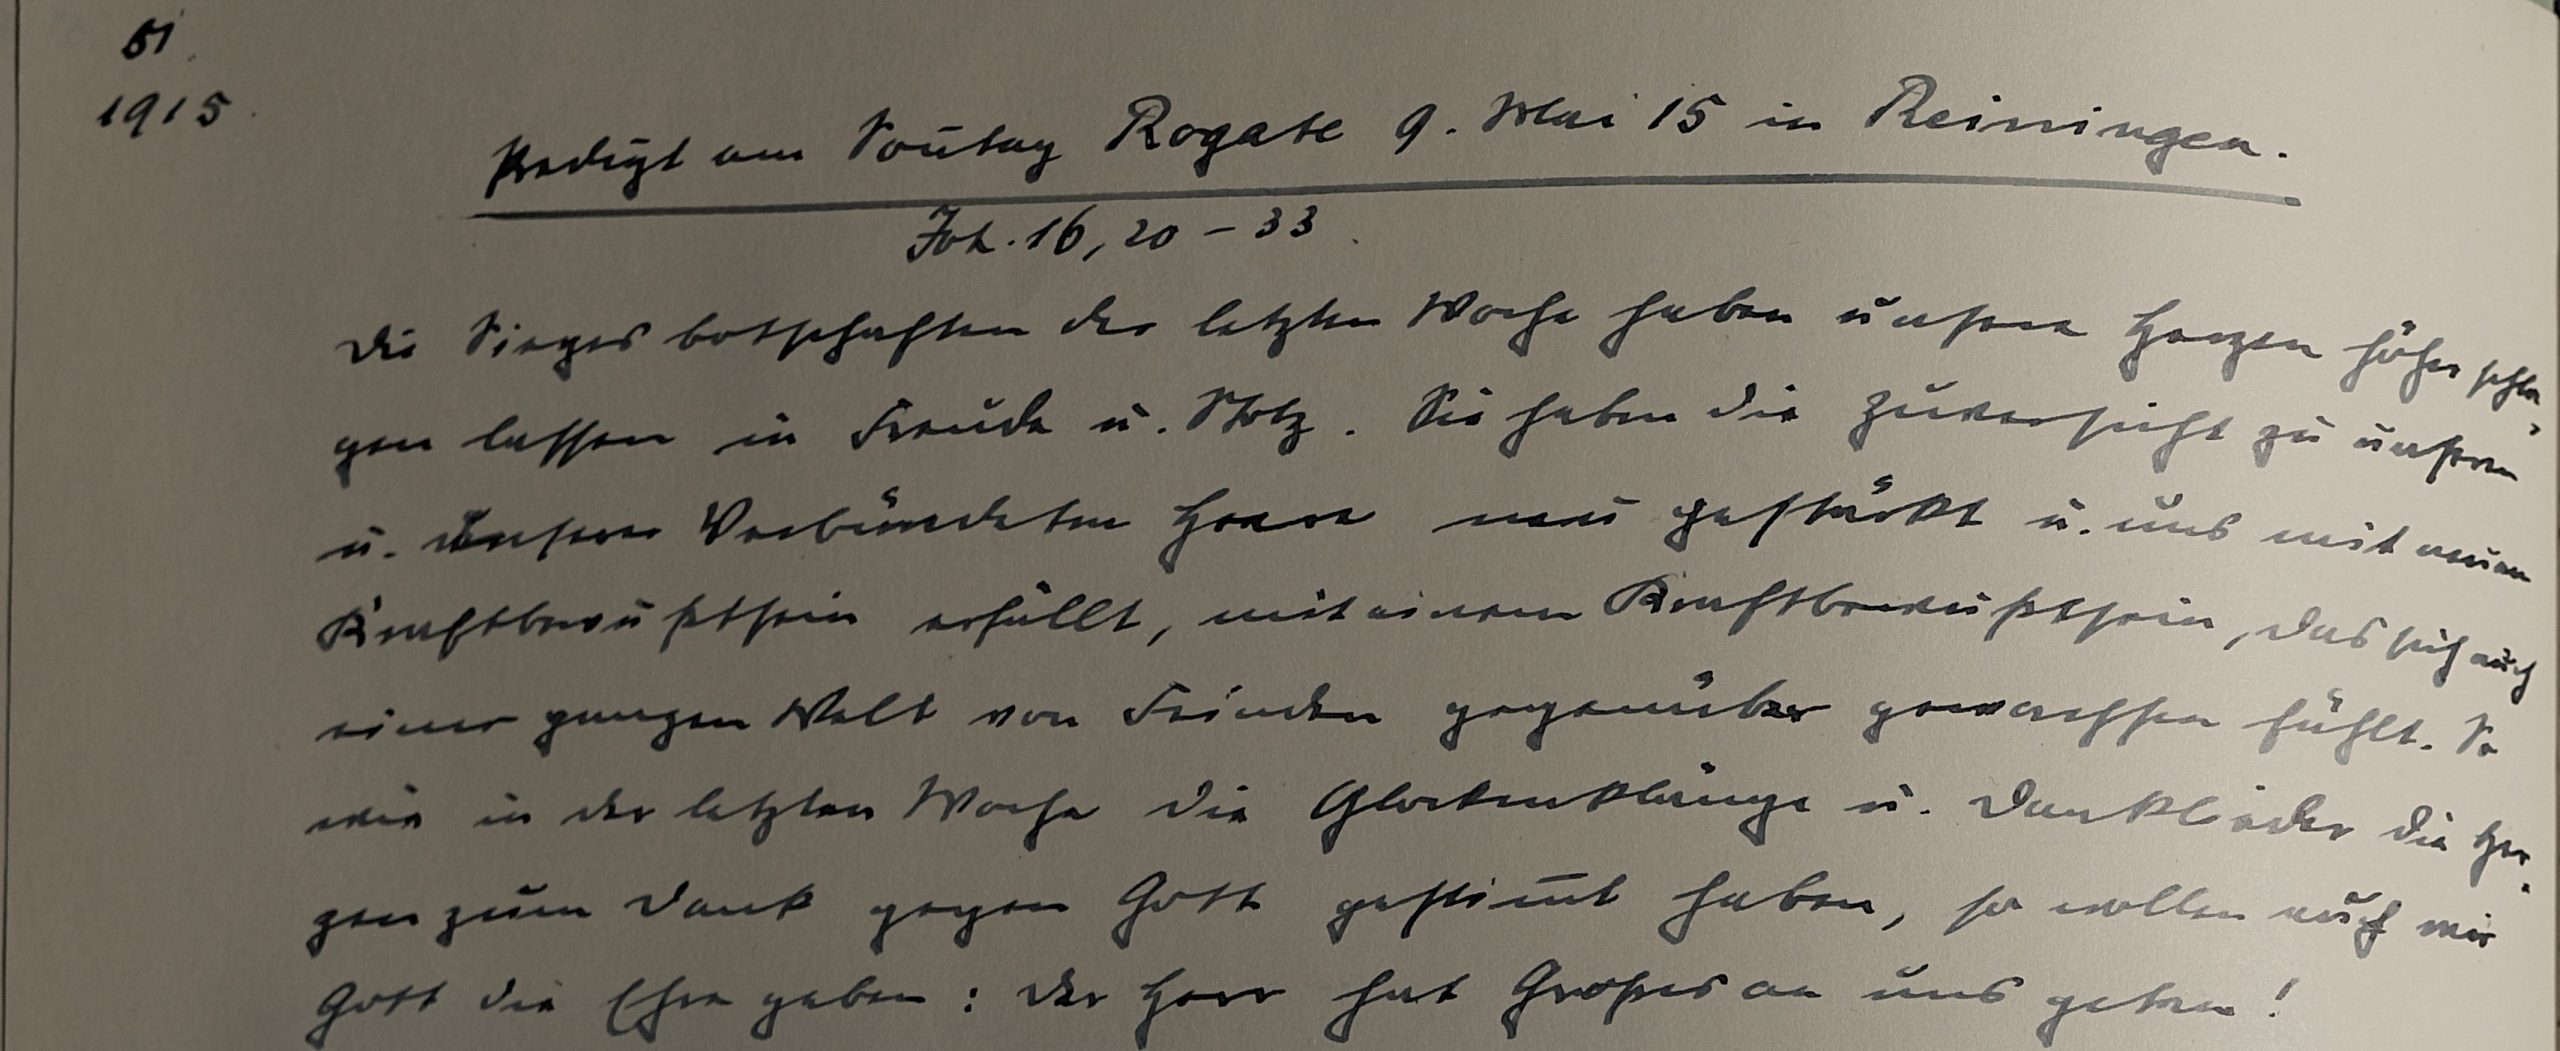 51.
1915.
Predigt am Soñtag Rogate 9. Mai 15 in Reiningen.
Joh. 16, 20 – 33.
Die Siegesbotschaften der letzten Woche haben unsere Herzen höher schla-
gen lassen in Freude u. Stolz. Sie haben die Zuversicht zu unserm
u. unserer Verbündeten Heere neu gestärkt u. uns mit neuem
Kraftbewußtsein erfüllt, mit einem Kraftbewußtsein, das sich auch
einer ganzen Welt von Feinden gegenüber gewachsen fühlt. So
wie in der letzten Woche die Glockenklänge u. Danklieder die Her-
zen zum Dank gegen Gott gestim̄t haben, so wollen auch wir
Gott die Ehre geben: Der Herr hat Großes an uns getan!